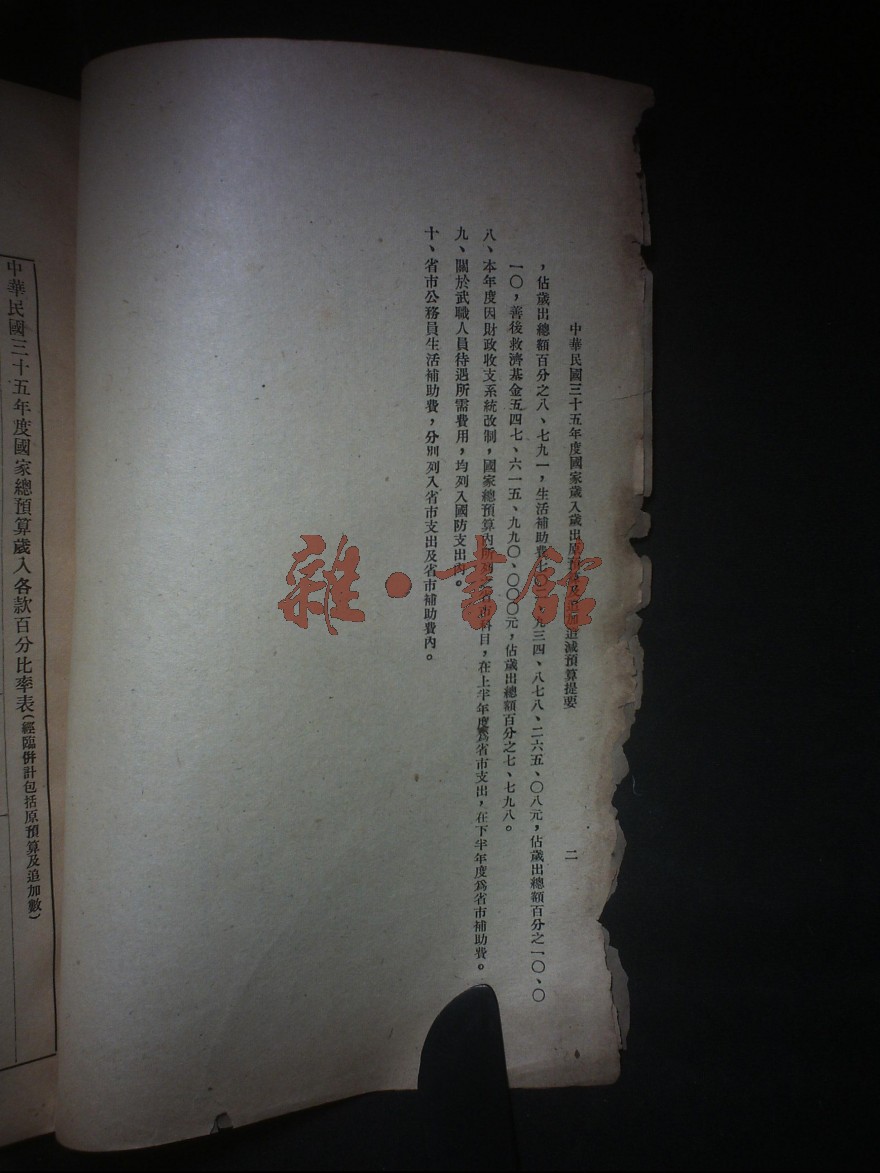 中華民國三十五年度國家歲入歲出原預算及追加追減預算提要
二
，佔歲出總額百分之八、七九一，生活補助費七〇九三四、八七八、二六五、〇八元，佔歲出總額百分之一〇、〇
一〇，善後救濟基金五四七、六一五、九九〇、〇〇〇元，佔歲出總額百分之七、七九八。
八、本年度因財政收支系統改制，國家總預算內所列之省市科目，在上半年度爲省市支出，在下半年度爲省市補助費。
九、關於武職人員待遇所需費用，均列入國防支出內。
十、省市公務員生活補助費，分別列入省市支出及省市補助費內。
中華民國三十五年度國家總預算歲入各款百分比率表（經臨併計包括原預算及追加數）
雜·書館